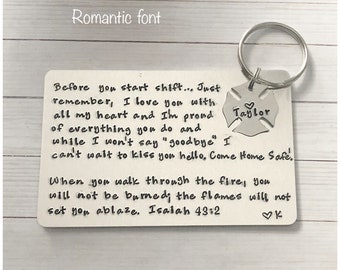 Romantic font
Before you start shift... Just
remember, I love you with
all my heart and I'm proud
of everything you do and
while I won't say "goodbye" I
can't wait to kiss you hello. Come Home Safe.
Taylor
When you walk through the fire, you
will not be burned; the flames will not
set you ablaze. Isaiah 43:2
♡K